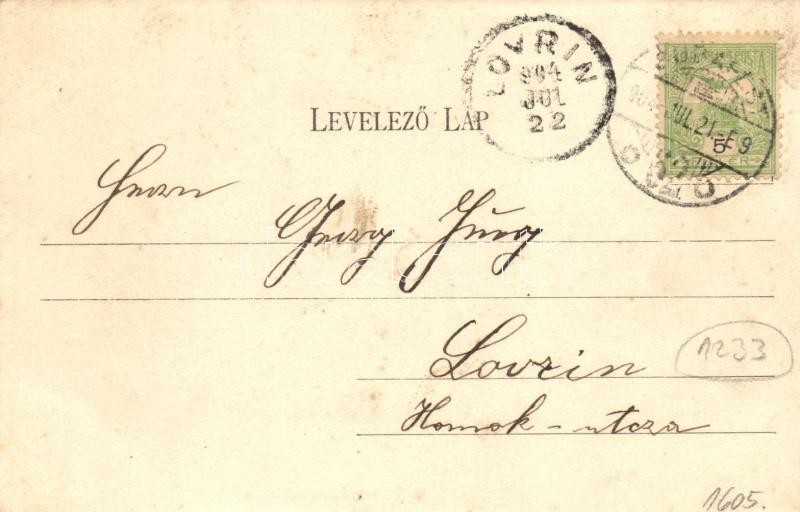 LOVRIN
904
JUL
22
LEVELEZŐ LAP
904 JUL 21
5
Herrn
Georg
Lovrin
Homok-utcza
1233
1605.